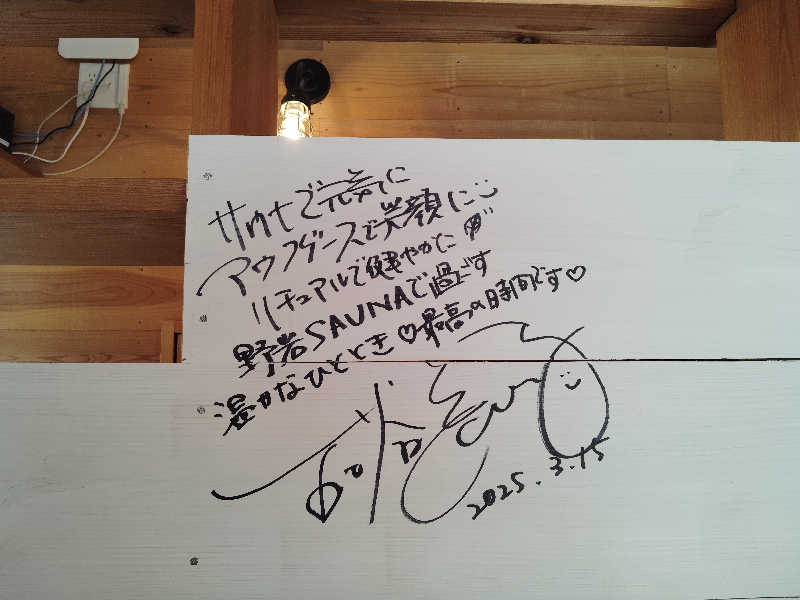 サウナで元気に
アウフグースで笑顔に
リチュアルで健やかに
野岩SAUNAで過ごす
温かなひととき♡最高の時間です♡
2025.3.15